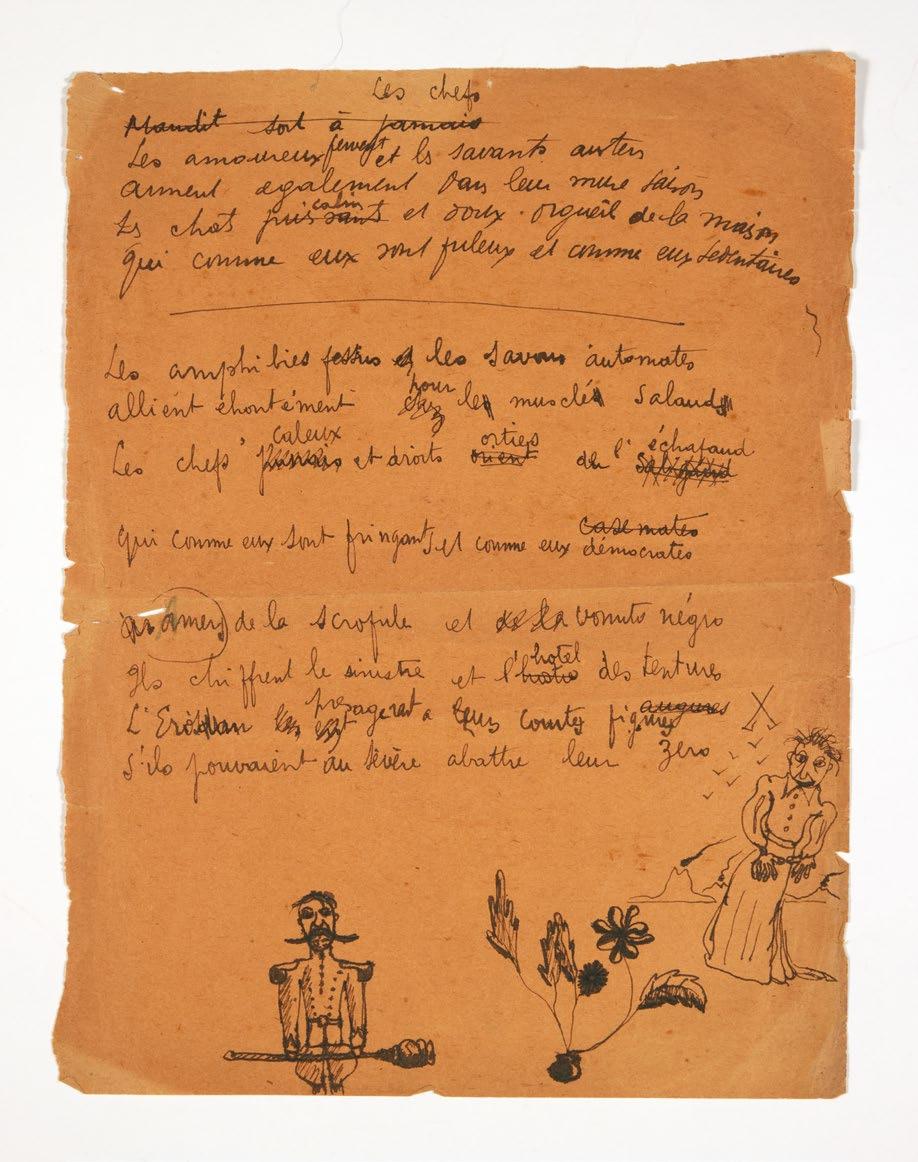 Les chefs
Maudit soit à jamais
Les amoureux fervent et ls savants austers
aiment egalement Dans leur mure saison
Ls chat puissant calin et doux . orgueil de la maison
Qui comme eux sont frileux et comme eux sedentaires
Les amphibies fessus les savons automates
allient éhontément pour les musclés Salauds
Les chefs caleux et droits orties de l'échafaud
Qui comme eux sont fringants et comme eux casemates démocrates
amers de la scrofule et de la vomito négro
Ils chiffrent le sinistre et l'hotel des tentures
L' presagerait a leurs comtes figures augures
S'ils pouvaient au sévère abattre leur Zero
X